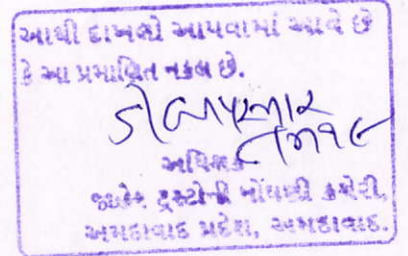 આથી દાખલો આપવામાં આવે છે
કે આ પ્રમાણિત નકલ છે.
અધિક્ષક
જાહેર ટ્રસ્ટોની નોંધણી કચેરી,
અમદાવાદ પ્રદેશ, અમદાવાદ.